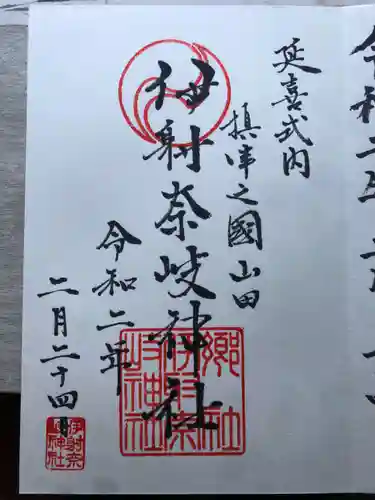 令和二年
延喜式内
摂津之國山田
伊射奈岐神社
令和二年
二月二十四日
郷社
伊射奈
岐神社
伊射奈
岐神社